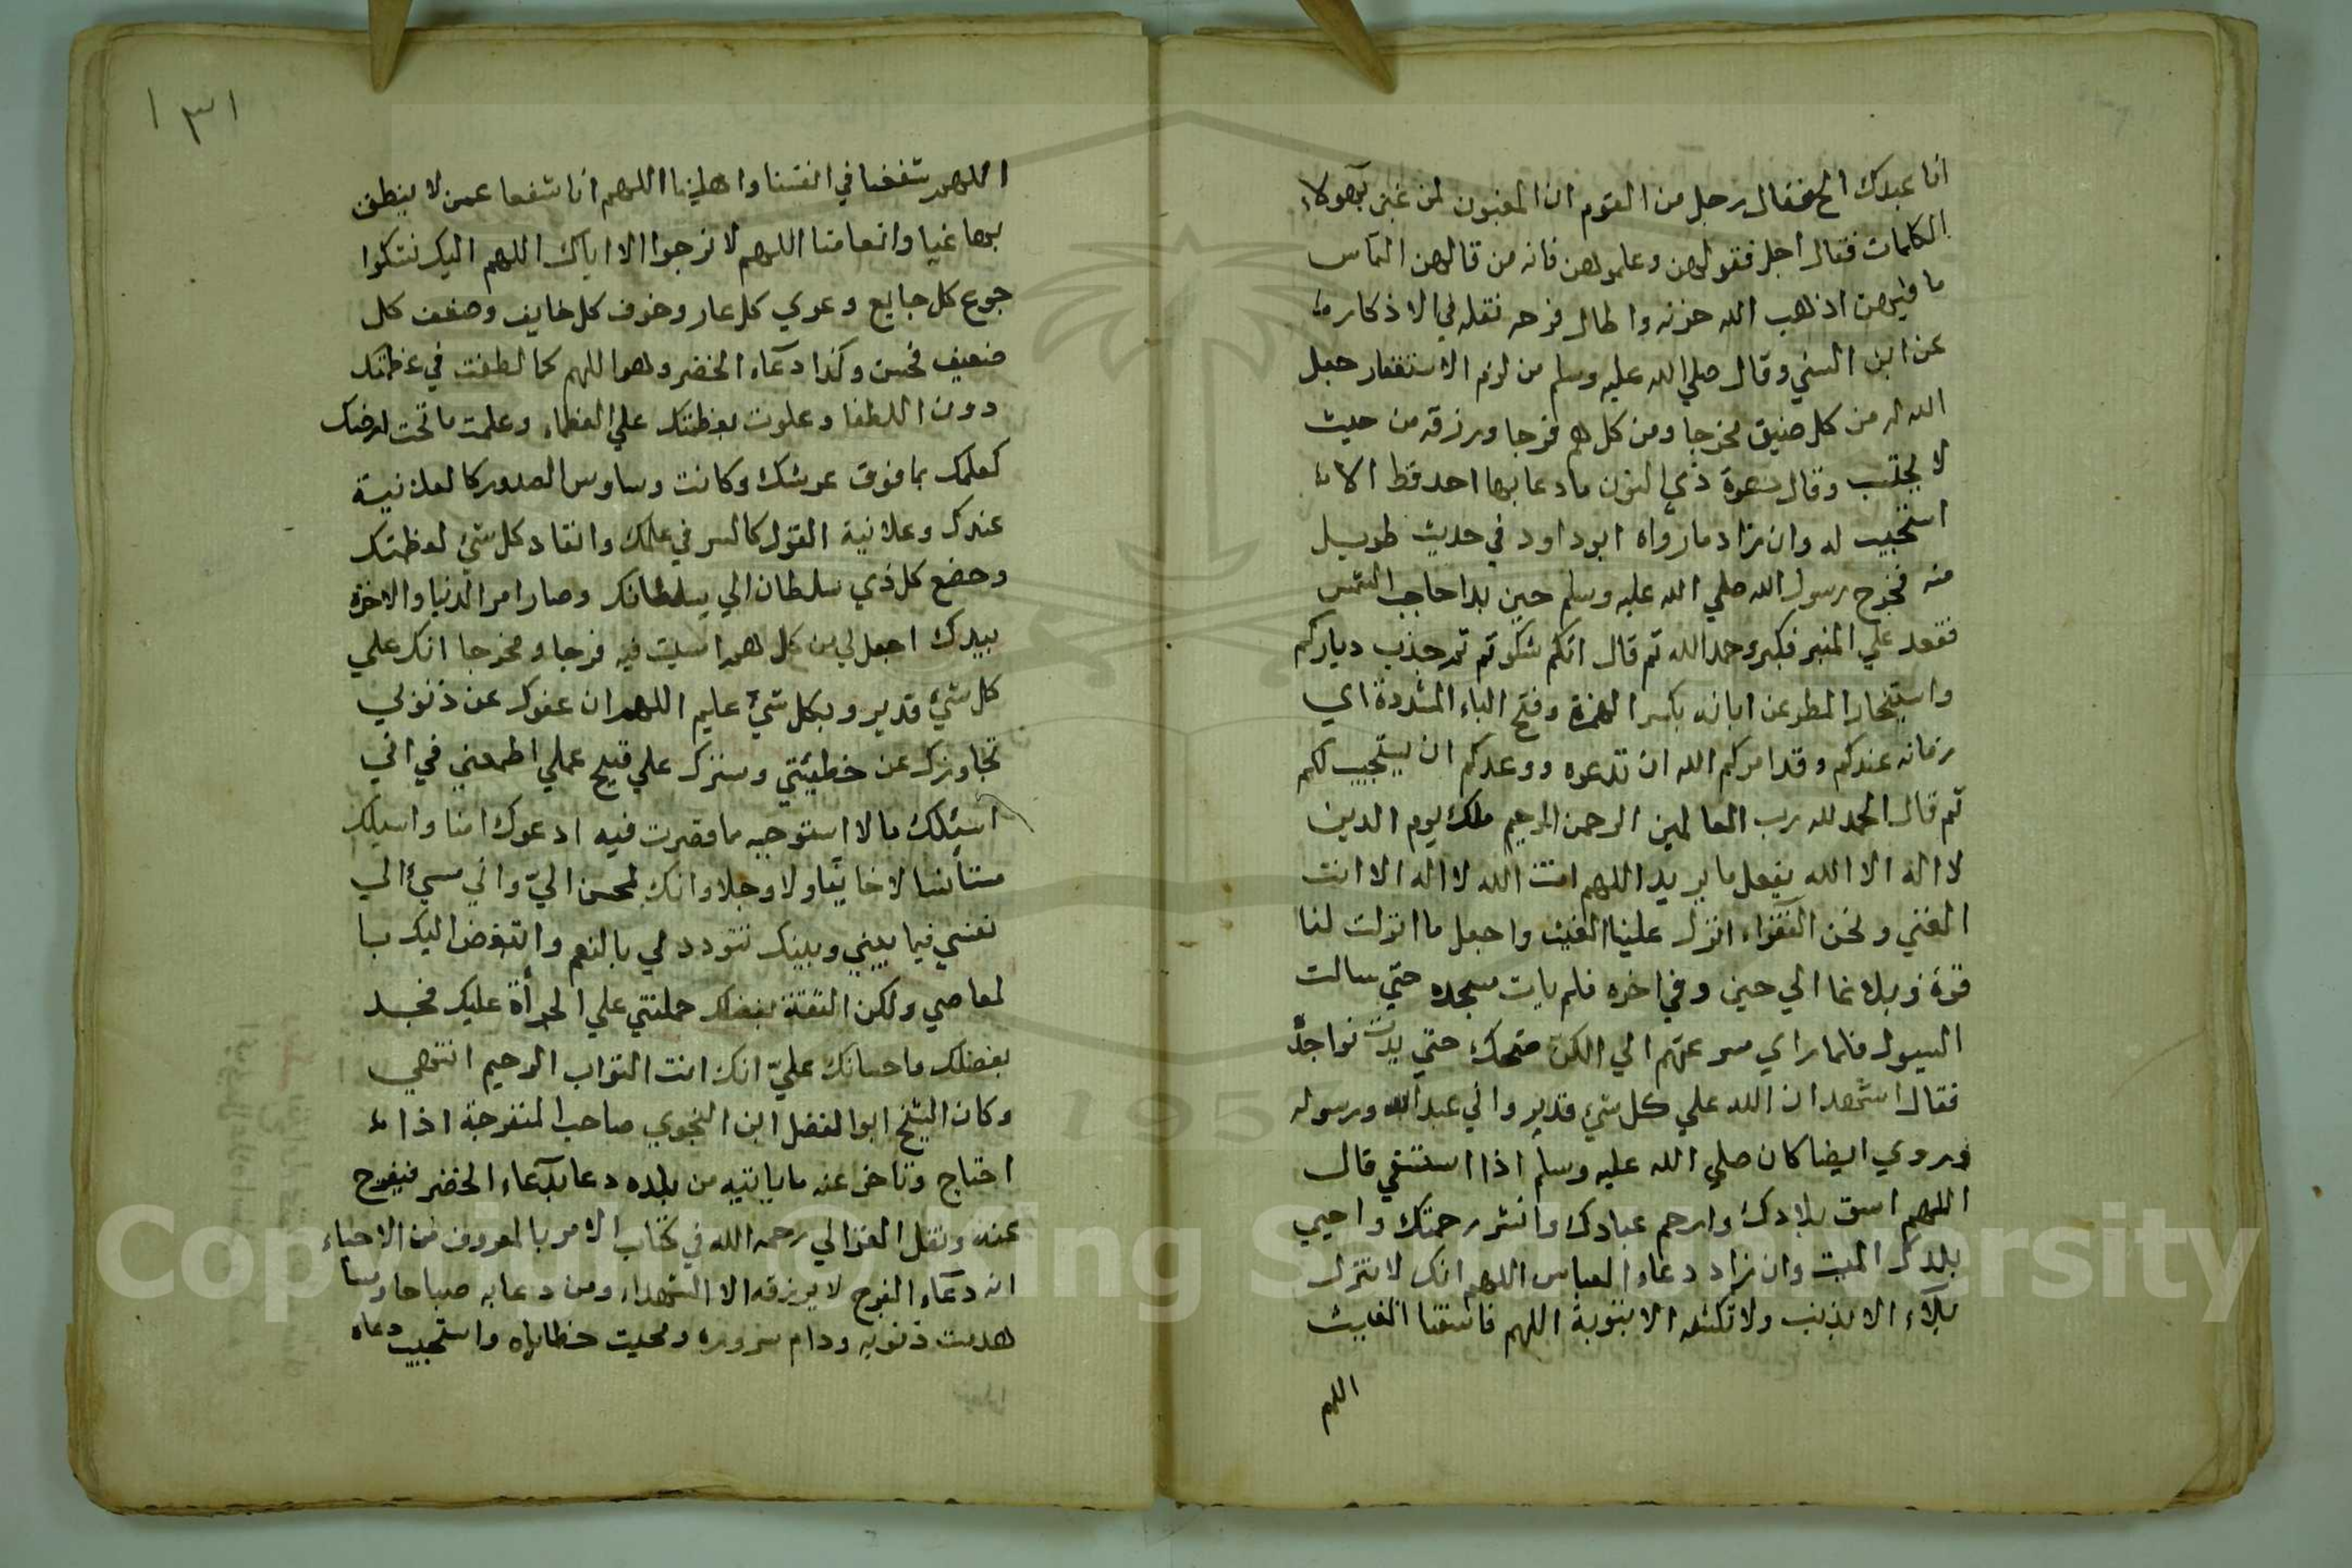 انا عبدك الخ فقال رجل من القوم ان المغبون لمن غبن بهولاء
الكلمات فقال اجل فقولوهن وعلموهن فانه من قالهن التماس
ما فيهن اذهب الله حزنه واطال فرحه نقله في الاذكار
عن ابن السني وقال صلي الله عليه وسلم من لزم الاستغفار جعل
الله له من كل ضيق مخرجا ومن كل هم فرجا ورزقه من حيث
لا يحتسب وقال دعوة ذي النون ما دعا بها احد قط الا
استجيب له وان زاد ما رواه ابو داود في حديث طويل
منه فخرج رسول الله صلي الله عليه وسلم حين بدا حاجب الشمس
فقعد علي المنبر فكبر وحمد الله ثم قال انكم شكوتم جذب دياركم
واستيخار المطر عن ابانه بكسر الهمزة وفتح الباء المشددة اي
زمانه عندكم وقد امركم الله ان تدعوه ووعدكم ان يستجيب لكم
ثم قال الحمد لله رب العالمين الرحمن الرحيم ملك يوم الدين
لا اله الا الله يفعل ما يريد اللهم انت الله لا اله الا انت
الغني ونحن الفقراء انزل علينا الغيث واجعل ما انزلت لنا
قوة وبلاغا الي حين وفي اخره فلم يات مسجده حتي سالت
السيول فلما راي سرعتهم الي الكن ضحك حتي بدت نواجذه
فقال اشهد ان الله علي كل شي قدير واني عبد الله ورسوله
وروي ايضا كان صلي الله عليه وسلم اذا استسقي قال
اللهم اسق بلادك وارحم عبادك وانشر رحمتك واحيي
بلدك الميت وان زاد دعاء العباس اللهم انك لا تنزل
بلاء الا بذنب ولا تكشفه الا بتوبة اللهم فاسقنا الغيث
اللهم
١٣١
اللهم شفعنا في انفسنا واهلينا اللهم انا شفعا عمن لا ينطق
بهاغيا وانعامنا اللهم لا نرجوا الا اياك اللهم اليك نشكوا
جوع كل جايع وعري كل عار وخوف كل خايف وضعف كل
ضعيف فحسن وكذا دعاء الخضر وهو اللهم كما لطفت في عظمتك
دون اللطفا وعلوت بعظمتك علي العظماء وعلمت ما تحت ارضك
كعلمك بما فوق عرشك وكانت وساوس الصدور كالعلانية
عندك وعلانية القول كالسر في علمك وانقاد كل شئ لعظمتك
وخضع كل ذي سلطان الي سلطانك وصار امر الدنيا والاخرة
بيدك اجعل لي من كل هم امسيت فيه فرجا ومخرجا انك علي
كل شئ قدير وبكل شئ عليم اللهم ان عفوك عن ذنوبي
تجاوزك عن خطيئتي وسترك علي قبيح عملي اطمعني في اني
اسئلك ما لا استوجبه ما قصرت فيه ادعوك امنا واسيلك
مستأنسا لا خايفا ولا وجلا وانك لمحسن اليّ واني مسيء الي
نفسي فيما بيني وبينك تتودد لي بالنعم واتبغض اليك با
لمعاصي ولكن الثقة بفضلك حملتني علي الجرأة عليك فجد
بفضلك واحسانك عليّ انك انت التواب الرحيم انتهي
وكان الشيخ ابو الفضل ابن النحوي صاحب المنفرجة اذا
احتاج وتاخر عنه ما ياتيه من بلده دعا بدعاء الخضر فيفرج
عنه ونقل الغزالي رحمه الله في كتاب الامر بالمعروف من الاحياء
ان دعاء الفرج لا يرزقه الا الشهداء ومن دعا به صباحا ومسا
هدمت ذنوبه ودام سروره ومحيت خطاياه واستجيب دعاه